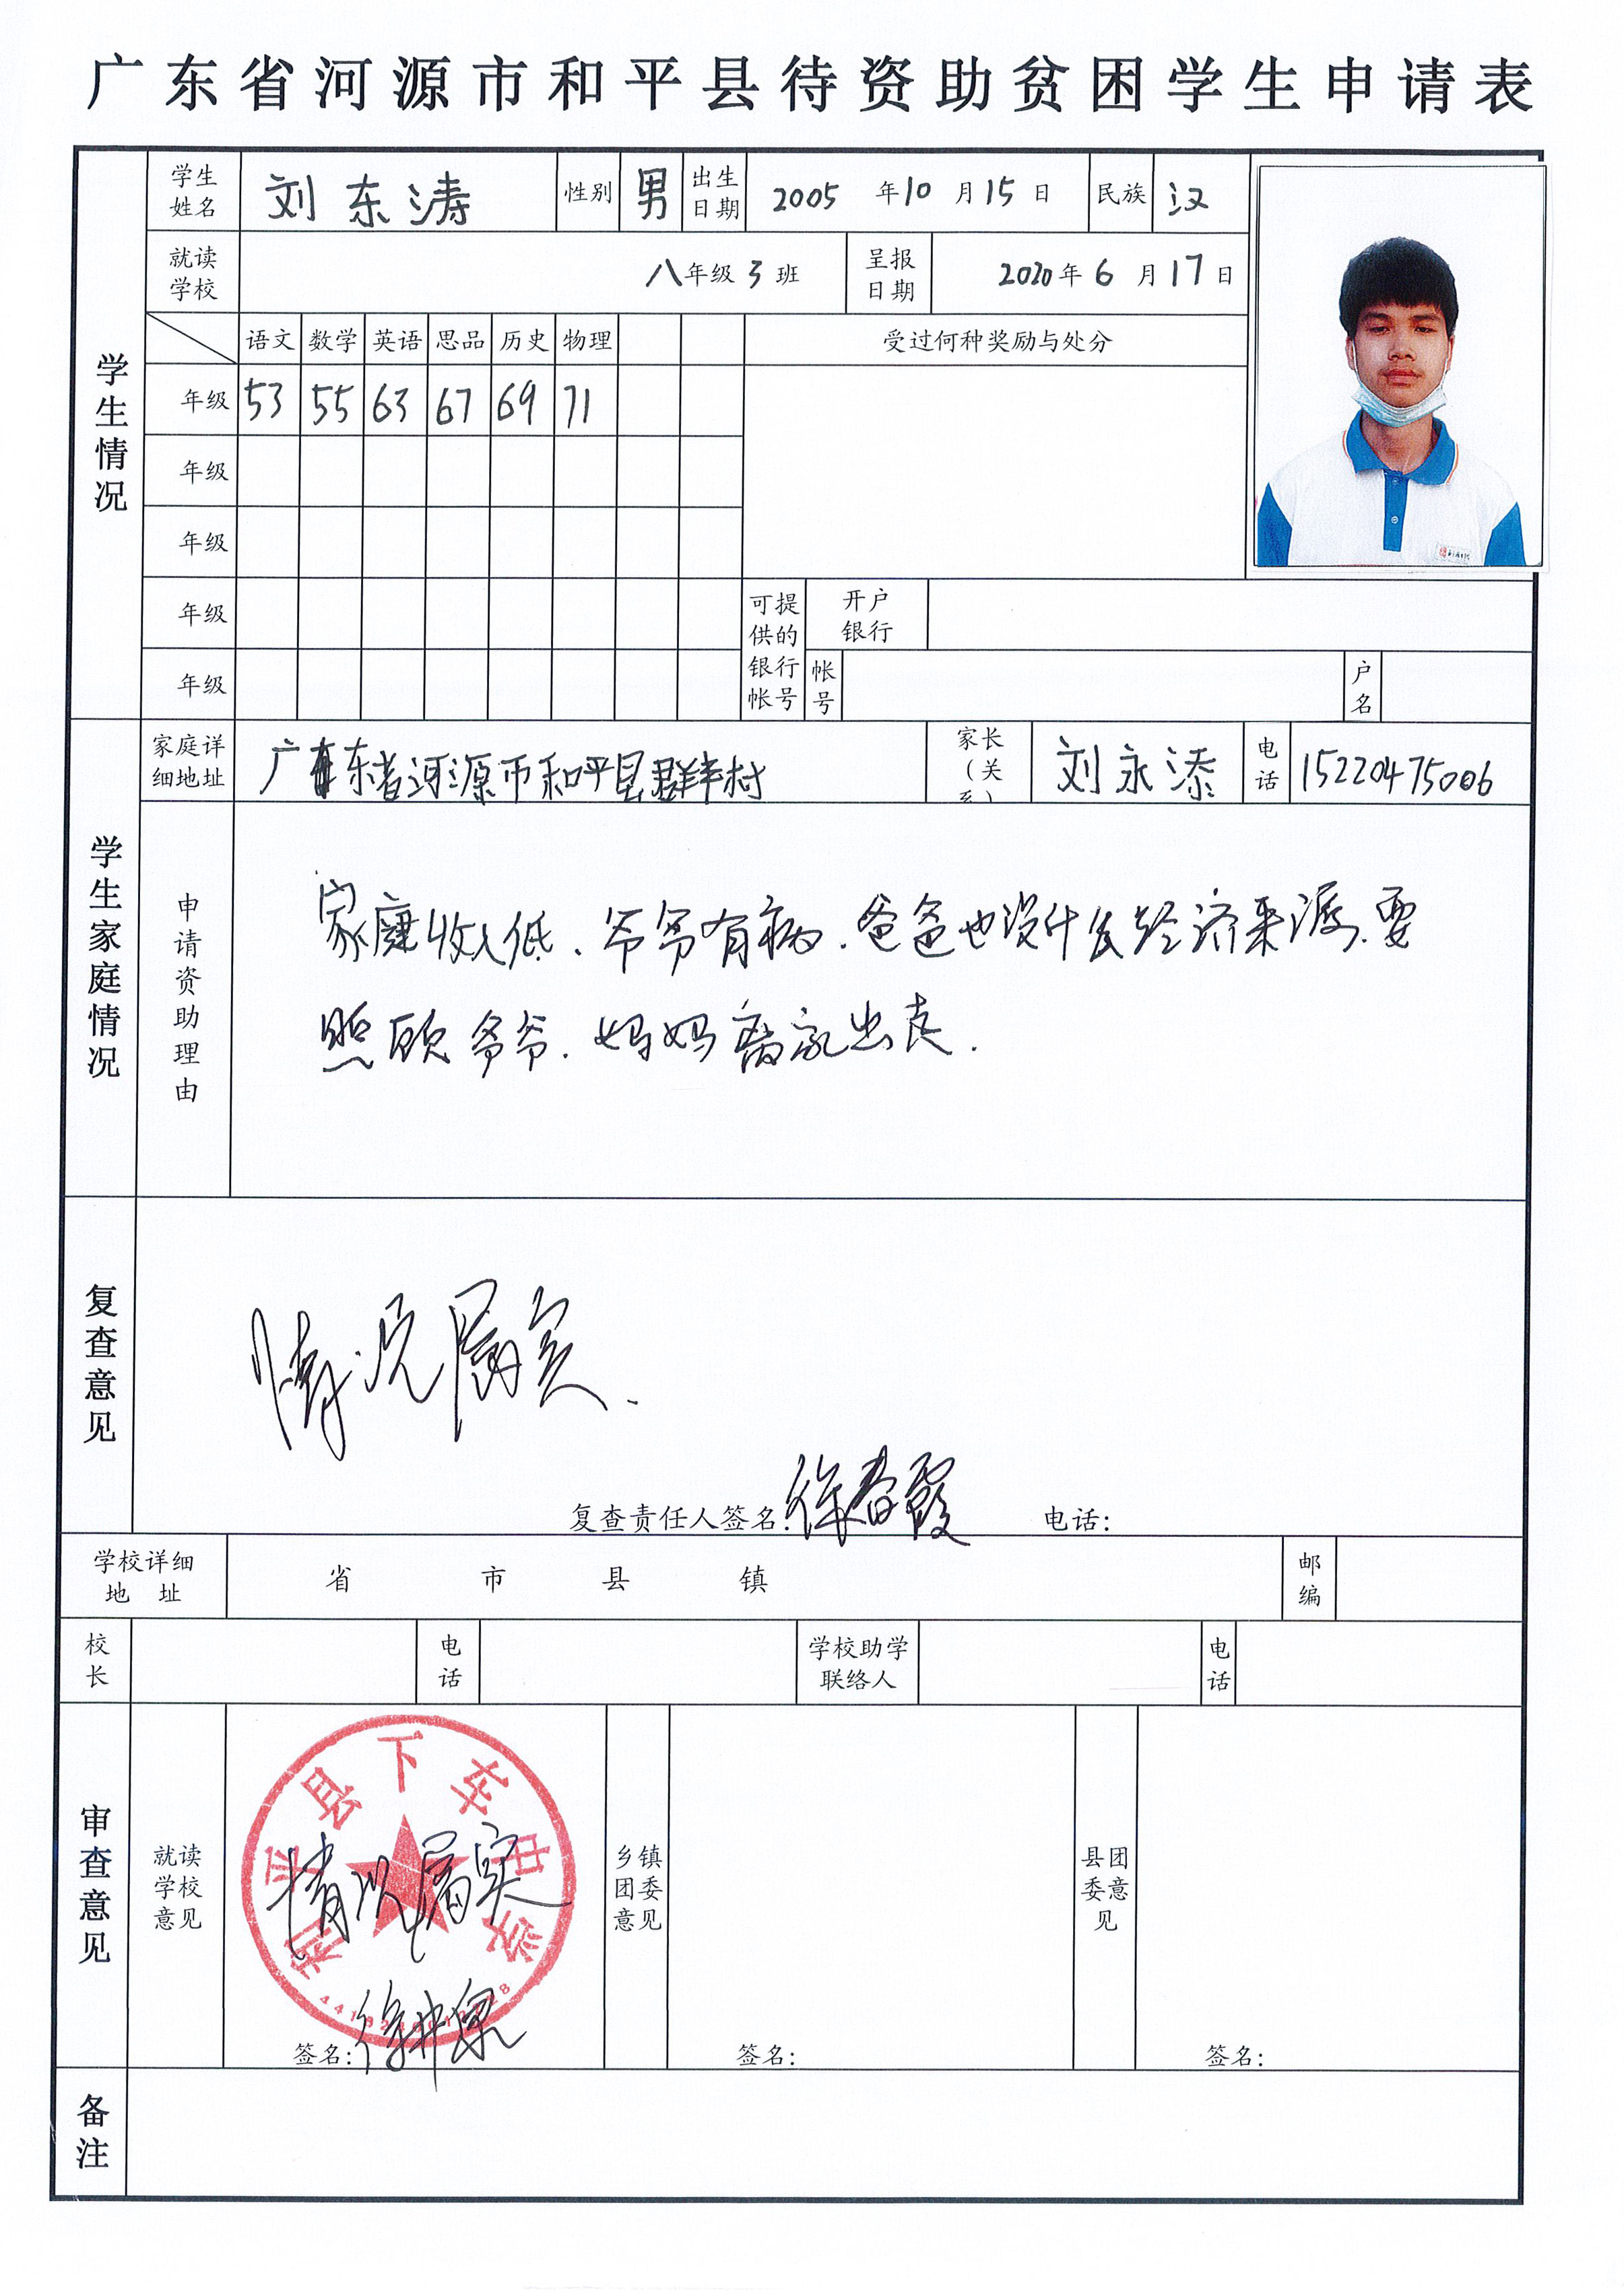 广东省河源市和平县待资助贫困学生申请表
学生情况
学生姓名 刘东涛 性别 男 出生日期 2005年10月15日 民族 汉
就读学校 八年级3班 呈报日期 2020年6月17日
语文 数学 英语 思品 历史 物理 受过何种奖励与处分
年级 53 55 63 67 69 71
年级
年级
年级 可提供的银行帐号 开户银行
年级 帐号 户名
学生家庭情况
家庭详细地址 广东省河源市和平县群丰村 家长（关系） 刘永添 电话 15220475006
申请资助理由
家庭收入低、爷爷有病.爸爸也没什么经济来源.要
照顾爷爷.妈妈离家出走.
复查意见
情况属实.
复查责任人签名:徐春霞 电话:
学校详细地址 省 市 县 镇 邮编
校长 电话 学校助学联络人 电话
审查意见
就读学校意见 乡镇团委意见 县团委意见
和平县下车中学
情况属实
签名: 签名: 签名:
备注